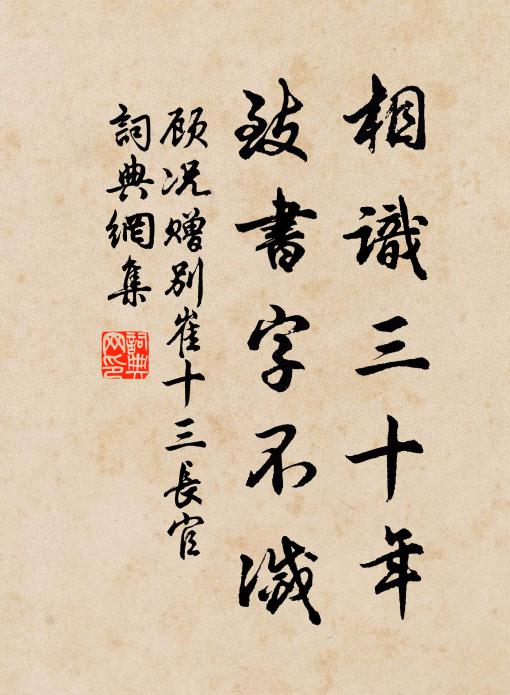 相識三十年
致書字不滅
顾况赠别崔十三長官
詞典網集
詞典网印